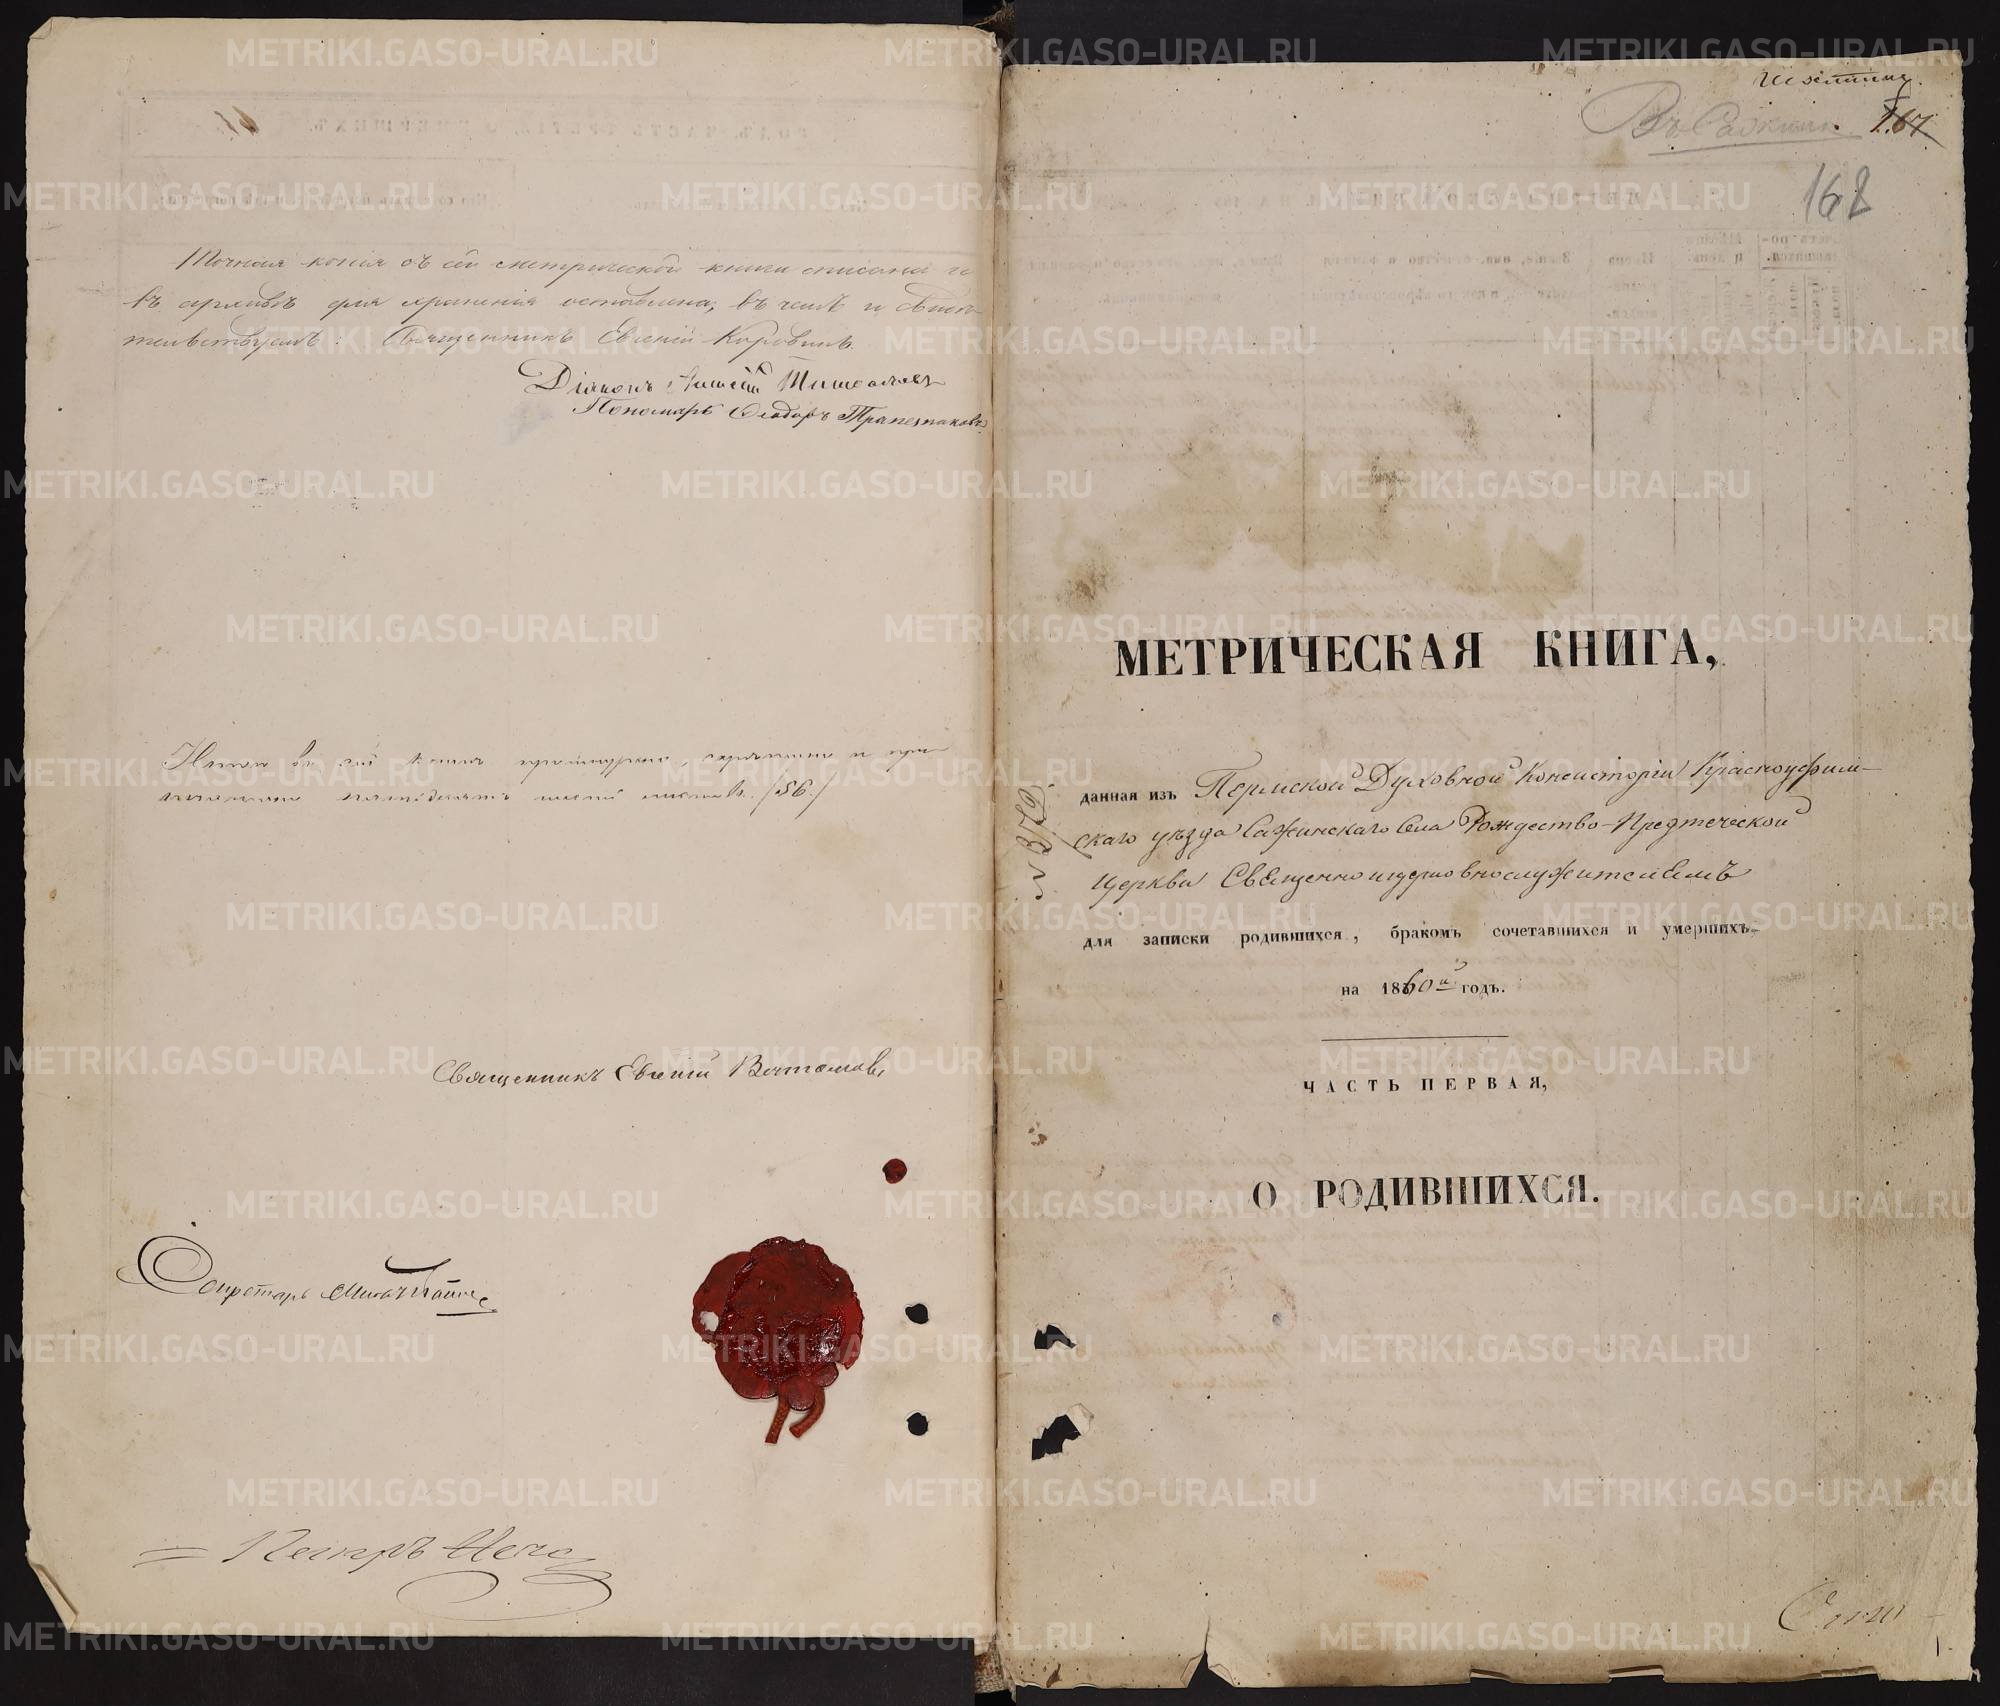 Точная копія съ сей метрической книги списана и
въ архивъ для храненія оставлена, въ чемъ и свидѣ-
тельствуемъ: Священникъ Евгеній Коровинъ.
Діаконъ Алексѣй
Пономарь Ѳеодоръ Трапезниковъ
въ сей книгѣ прошнурованно, скрѣпленно и при
пятьдесятъ шесть листовъ /56./
Священникъ Евгеній
Секретарь
Петръ
167
168
МЕТРИЧЕСКАЯ КНИГА,
данная изъ Пермской Духовной Консисторіи Красноуфим-
скаго уѣзда Сажинскаго Села Рождество-Предтеческой
Церкви Священноцерковнослужителямъ
для записки родившихся, бракомъ сочетавшихся и умершихъ
на 1860й годъ.
ЧАСТЬ ПЕРВАЯ,
О РОДИВШИХСЯ.
METRIKI.GASO-URAL.RU